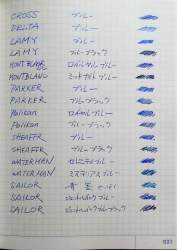 CROSS ブルー
DELTA ブルー
LAMY ブルー
LAMY ブルーブラック
MONTBLANC ロイヤルブルー
MONTBLANC ミッドナイトブルー
PARKER ブルー
PARKER ブルーブラック
Pelikan ロイヤルブルー
Pelikan ブルーブラック
SHEAFFER ブルー
SHEAFFER ブルーブラック
WATERMAN セレニティブルー
WATERMAN ミステリアスブルー
SAILOR 青
SAILOR ジェントルインクブルー
SAILOR ジェントルインクブルーブラック